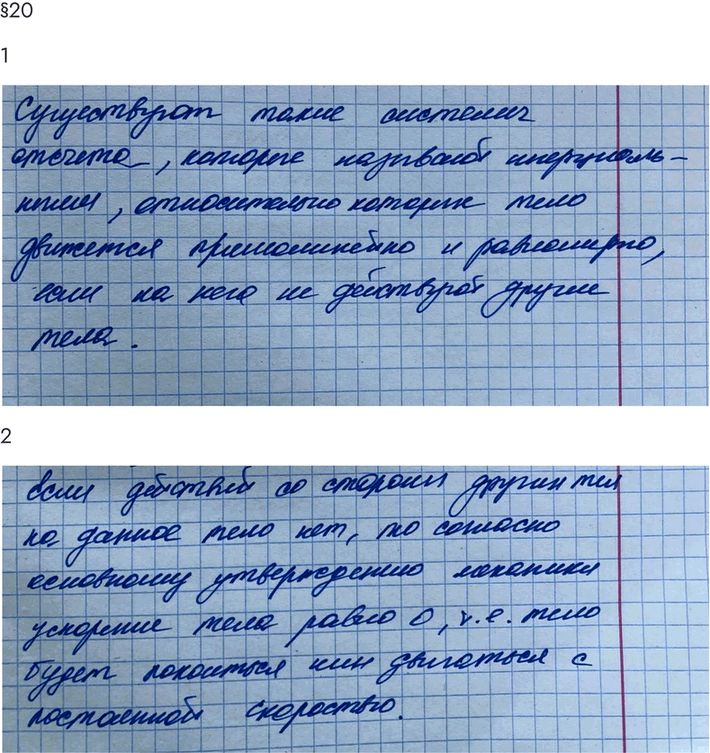 §20
1
Существуют такие системы
отсчета, которые называют инерциаль-
ными, относительно которых тело
движется прямолинейно и равномерно,
если на него не действуют другие
тела.
2
Если действий со стороны других тел
на данное тело нет, то согласно
основному утверждению механики
ускорение тела равно 0, т.е. тело
будет покоиться или двигаться с
постоянной скоростью.